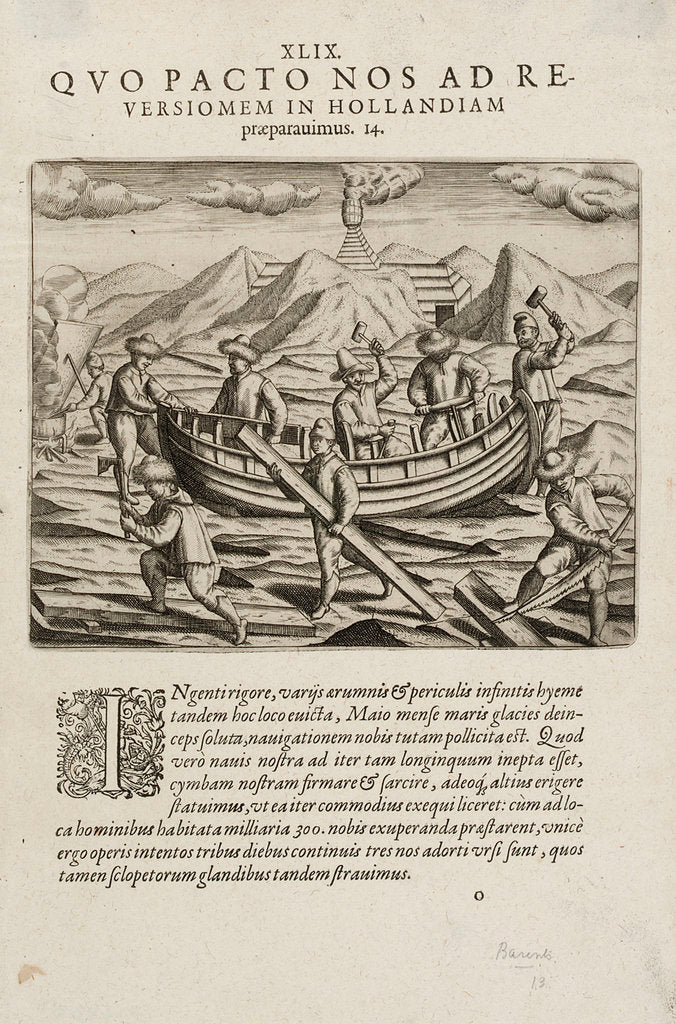 XLIX.
QVO PACTO NOS AD RE-
VERSIOMEM IN HOLLANDIAM
præparauimus. 14.
INgenti rigore, varijs ærumnis & periculis infinitis hyeme
tandem hoc loco euicta, Maio mense maris glacies dein-
ceps soluta, nauigationem nobis tutam pollicita est. Quod
verò nauis nostra ad iter tam longinquum inepta esset,
cymbam nostram firmare & sarcire, adeoq; altius erigere
statuimus, vt ea iter commodius exequi liceret: cùm ad lo-
ca hominibus habitata milliaria 300. nobis exuperanda præstarent, vnicè
ergo operis intentos tribus diebus continuis tres nos adorti vrsi sunt, quos
tamen sclopetorum glandibus tandem strauimus.
o
Barents
13